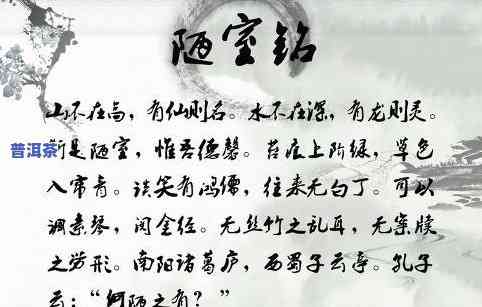 陋室铭
山不在高，有仙则名。水不在深，有龙则灵。
斯是陋室，惟吾德馨。苔痕上阶绿，草色
入帘青。谈笑有鸿儒，往来无白丁。可以
调素琴，阅金经。无丝竹之乱耳，无案牍
之劳形。南阳诸葛庐，西蜀子云亭。孔子
云：“何陋之有？”
普洱茶